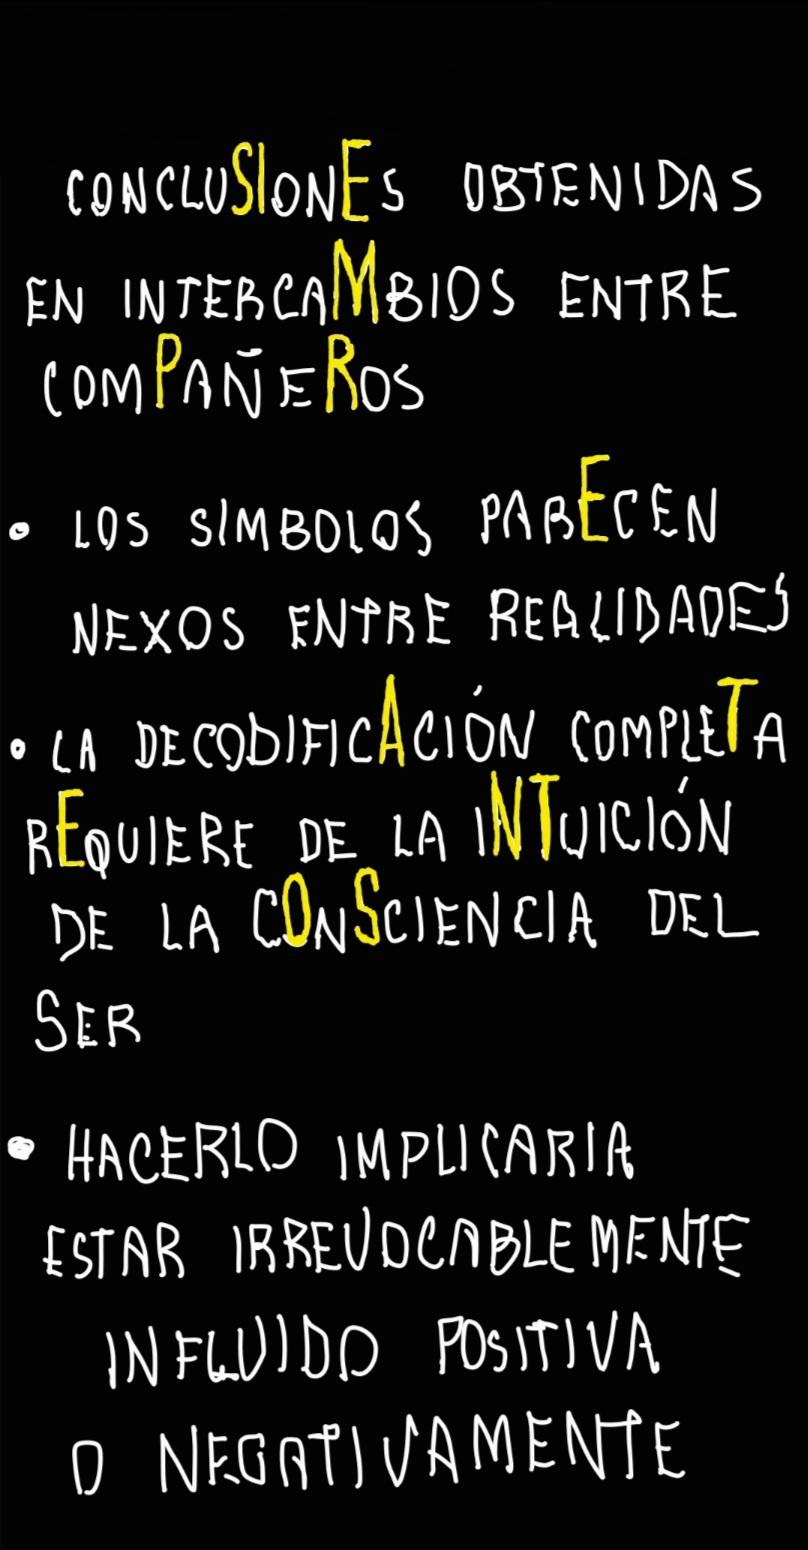 CONCLUSIONES OBTENIDAS
EN INTERCAMBIOS ENTRE
COMPAÑEROS
• LOS SÍMBOLOS PARECEN
NEXOS ENTRE REALIDADES
• LA DECODIFICACIÓN COMPLETA
REQUIERE DE LA INTUICIÓN
DE LA CONSCIENCIA DEL
SER
• HACERLO IMPLICARIA
ESTAR IRREVOCABLEMENTE
INFLUIDO POSITIVA
O NEGATIVAMENTE